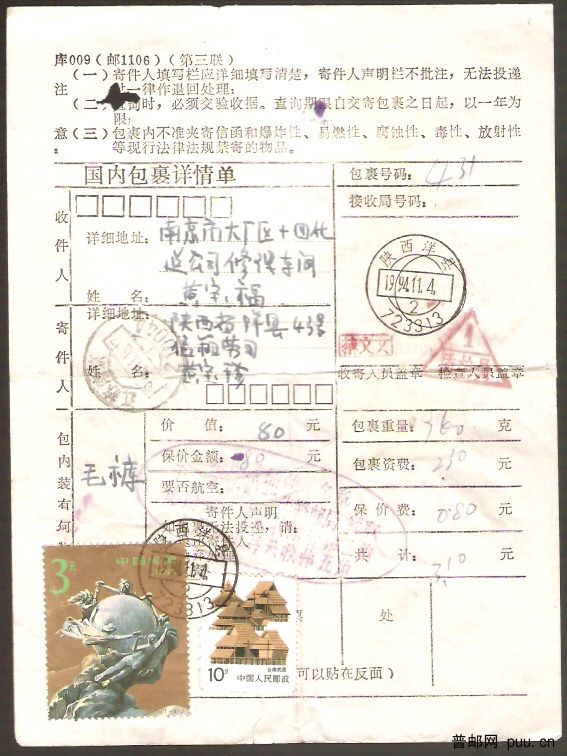 库009(邮1106)(第三联)
(一)寄件人填写栏应详细填写清楚,寄件人声明栏不批注,无法投递
注 一律作退回处理;
(二 询时,必须交验收据。查询期限自交寄包裹之日起,以一年为
限;
意(三)包裹内不准夹寄信函和爆炸性、易燃性、腐蚀性、毒性、放射性
等现行法律法规禁寄的物品。
国内包裹详情单
包裹号码: 431
接收局号码:
收件人
详细地址: 南京市大厂区十四化
公司修保车间
姓 名: 黄宝福
寄件人
详细地址: 陕西省洋县43号
姓 名: 黄宗
陕西洋县
1994.11.4.
2
723313
收寄人员盖章
检查人员盖章
包内装有何
毛裤
价 值: 80 元
保价金额: 80 元
要否航空:
寄件人声明
无法投递,请:
包裹重量: 760 克
包裹资费: 2.30 元
保 价 费: 0.80 元
共 计: 3.10 元
陕西洋县
11.4.
2
723313
处
可以贴在反面)
3元
中国邮政
10分
云南民居
中国人民邮政
普邮网 puu.cn